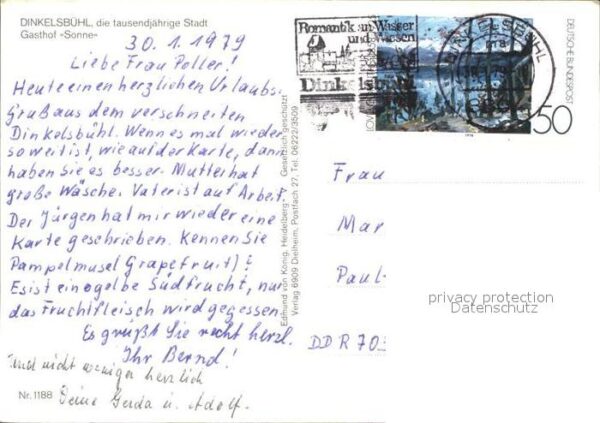 DINKELSBÜHL, die tausendjährige Stadt
Gasthof »Sonne«
30.1.1979
Liebe Frau Poller!
Heute einen herzlichen Urlaubs-
gruß aus dem verschneiten
Dinkelsbühl. Wenn es mal wieder
soweit ist, wie auf der Karte, dann
haben Sie es besser. Mutter hat
große Wäsche. Vater ist auf Arbeit.
Der Jürgen hat mir wieder eine
Karte geschrieben. Kennen Sie
Pampelmuse(Grapefruit)?
Es ist eine gelbe Südfrucht, nur
das Fruchtfleisch wird gegessen.
Es grüßt Sie recht herzl.
Ihr Bernd!
und nicht weniger herzlich
Deine Gerda u. Adolf.
Nr. 1188
Edmund von König, Heidelberg · Gesetzlich geschützt
Verlag 6909 Dielheim, Postfach 27, Tel. 06222/3509
Romantik an Wasser
und Wiesen
Dinkelsbühl
DINKELSBÜHL
DEUTSCHE BUNDESPOST
50
Frau
Mar
Paul-
DDR 703
privacy protection
Datenschutz